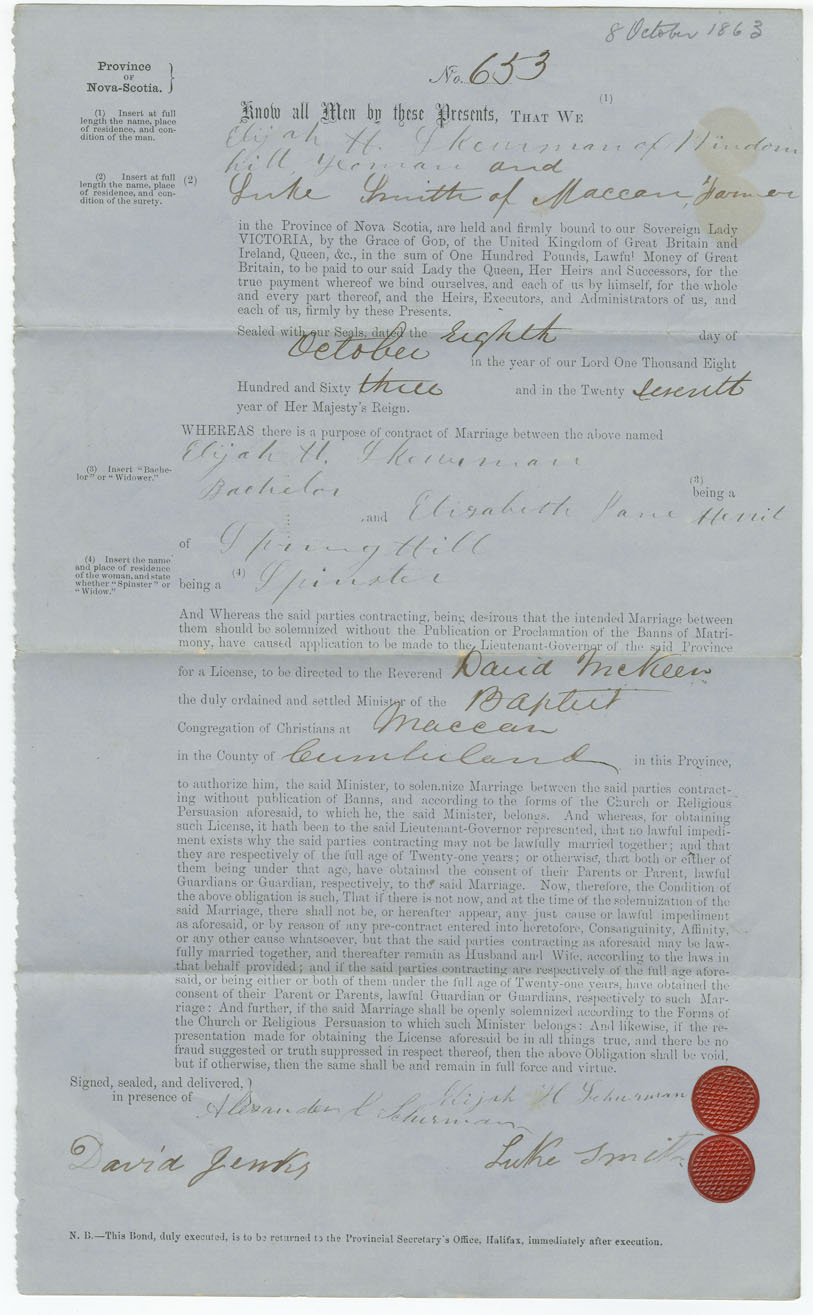 8 October 1863
Province
OF
Nova-Scotia.
No. 653
(1) Insert at full
length the name, place
of residence, and con-
dition of the man.
Know all Men by these Presents, THAT WE (1)
Elijah H. Skeurman of Windom
hill, Yeoman and
(2) Insert at full
length the name, place
of residence, and con-
dition of the surety.
(2) Luke Smith of Maccan, Farmer
in the Province of Nova Scotia, are held and firmly bound to our Sovereign Lady
VICTORIA, by the Grace of GOD, of the United Kingdom of Great Britain and
Ireland, Queen, &c., in the sum of One Hundred Pounds, Lawful Money of Great
Britain, to be paid to our said Lady the Queen, Her Heirs and Successors, for the
true payment whereof we bind ourselves, and each of us by himself, for the whole
and every part thereof, and the Heirs, Executors, and Administrators of us, and
each of us, firmly by these Presents.
Sealed with our Seals, dated the Eighth day of
October in the year of our Lord One Thousand Eight
Hundred and Sixty three and in the Twenty Seventh
year of Her Majesty's Reign.
WHEREAS there is a purpose of contract of Marriage between the above named
Elijah H. Skeurman
(3) Insert "Bache-
lor" or "Widower."
(3)
being a
Bachelor
and Elizabeth Jane
of Spring Hill
(4) Insert the name
and place of residence
of the woman, and state
whether "Spinster" or
"Widow."
being a (4) Spinster
And Whereas the said parties contracting, being desirous that the intended Marriage between
them should be solemnized without the Publication or Proclamation of the Banns of Matri-
mony, have caused application to be made to the Lieutenant-Governor of the said Province
for a License, to be directed to the Reverend David McKeen
the duly ordained and settled Minister of the Baptist
Congregation of Christians at Maccan
in the County of Cumberland in this Province,
to authorize him, the said Minister, to solemnize Marriage between the said parties contract-
ing without publication of Banns, and according to the forms of the Church or Religious
Persuasion aforesaid, to which he, the said Minister, belongs. And whereas, for obtaining
such License, it hath been to the said Lieutenant-Governor represented, that no lawful impedi-
ment exists why the said parties contracting may not be lawfully married together; and that
they are respectively of the full age of Twenty-one years; or otherwise, that both or either of
them being under that age, have obtained the consent of their Parents or Parent, lawful
Guardians or Guardian, respectively, to the said Marriage. Now, therefore, the Condition of
the above obligation is such, That if there is not now, and at the time of the solemnization of the
said Marriage, there shall not be, or hereafter appear, any just cause or lawful impediment
as aforesaid, or by reason of any pre-contract entered into heretofore, Consanguinity, Affinity,
or any other cause whatsoever, but that the said parties contracting as aforesaid may be law-
fully married together, and thereafter remain as Husband and Wife, according to the laws in
that behalf provided; and if the said parties contracting are respectively of the full age afore-
said, or being either or both of them under the full age of Twenty-one years, have obtained the
consent of their Parent or Parents, lawful Guardian or Guardians, respectively to such Mar-
riage: And further, if the said Marriage shall be openly solemnized according to the Forms of
the Church or Religious Persuasion to which such Minister belongs: And likewise, if the re-
presentation made for obtaining the License aforesaid be in all things true, and there be no
fraud suggested or truth suppressed in respect thereof, then the above Obligation shall be void,
but if otherwise, then the same shall be and remain in full force and virtue.
Signed, sealed, and delivered,
in presence of
Elijah H Schurman
Alexander Schurman
David Jenks
Luke Smith
N. B.—This Bond, duly executed, is to be returned to the Provincial Secretary's Office, Halifax, immediately after execution.